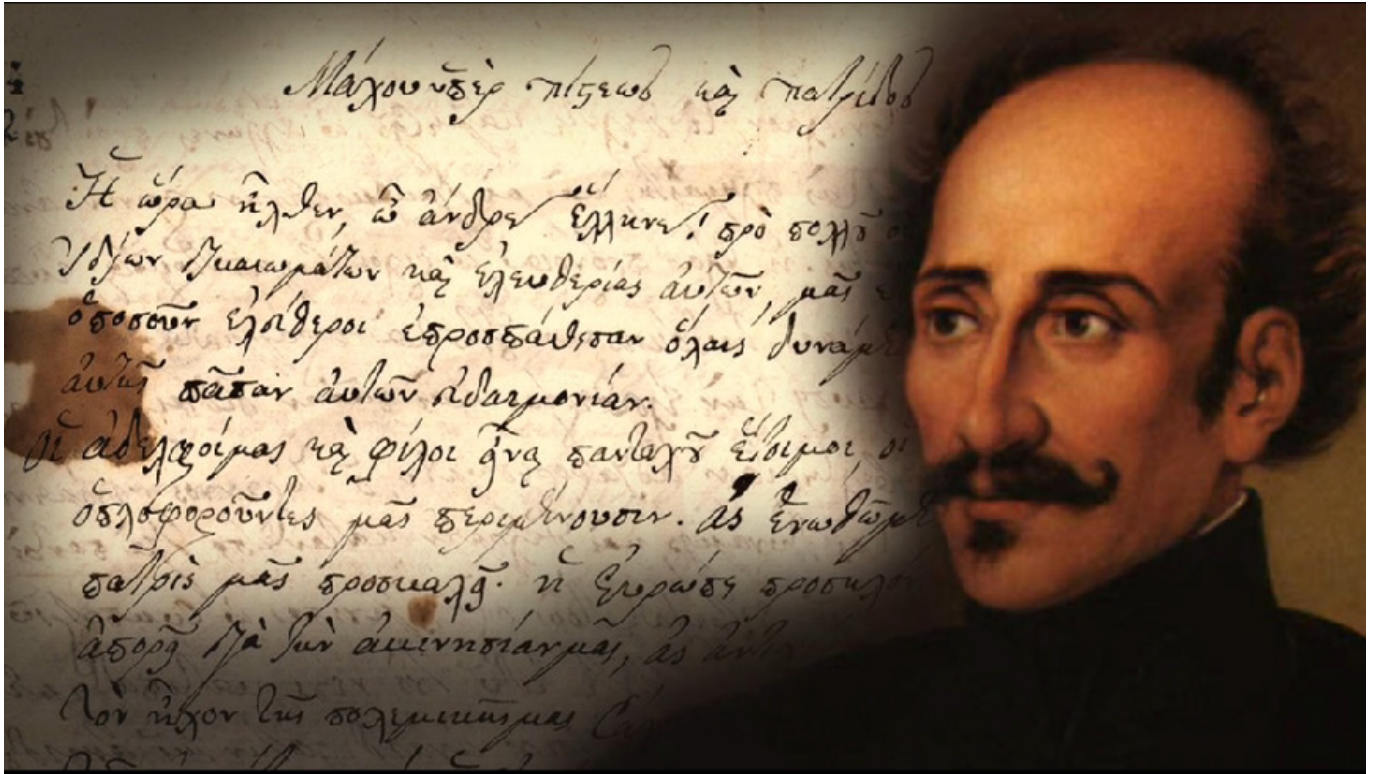 Μάχου ὑπὲρ πίστεως καὶ πατρίδος
Ἡ ὥρα ἦλθεν, ὦ ἄνδρες Ἕλληνες! πρὸ πολλοῦ
Ἰδίων δικαιωμάτων καὶ ἐλευθερίας αὐτῶν, μᾶς
ὁποσοῦν ἐλεύθεροι ἐπροσπάθησαν ὅλαις δυνάμε
αὐτῆς πᾶσαν αὐτῶν εὐδαιμονίαν.
Οἱ ἀδελφοί μας καὶ φίλοι εἶναι πανταχοῦ ἕτοιμοι οἱ
ὁπλοφοροῦντες μᾶς περιμένουσιν. ἂς ἑνωθῶμε
πατρὶς μᾶς προσκαλεῖ. ἡ Εὐρώπη προσηλο
ἀπορεῖ διὰ τὴν ἀκινησίαν μας, ἂς ἀντη
Τὸν ἦχον τῆς πολεμικῆς μας